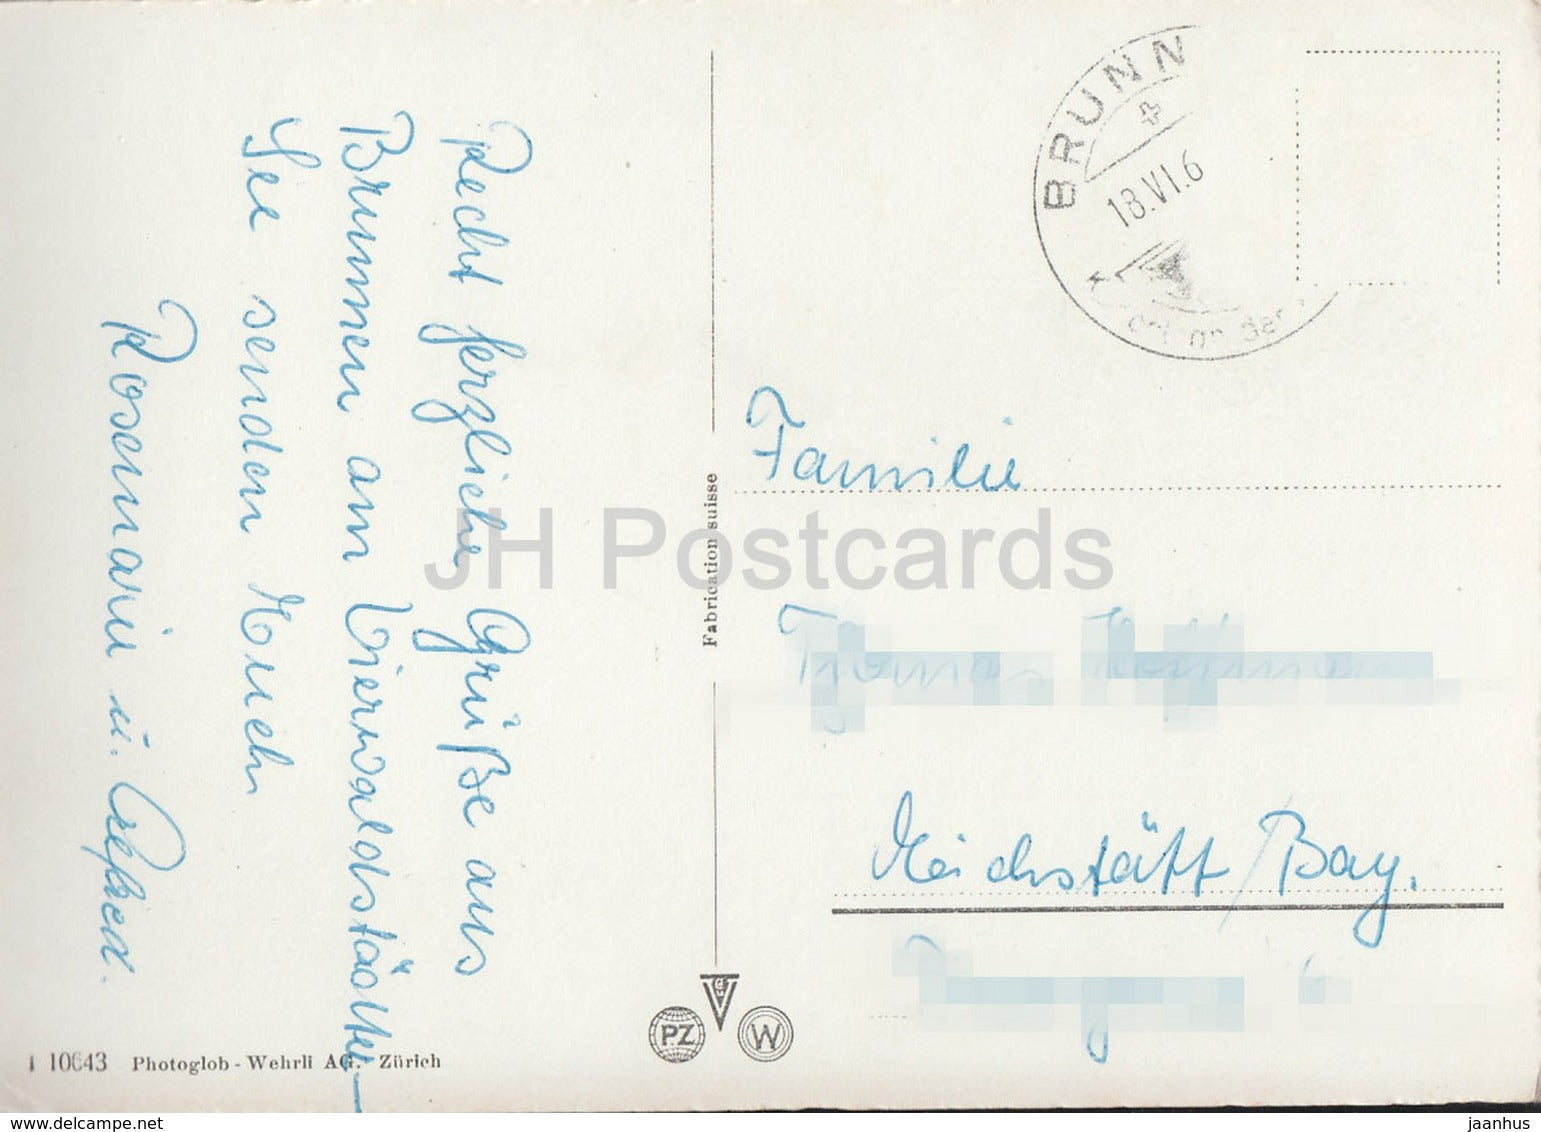 Recht herzliche Grüße aus
Brunnen am Vierwaldstätter-
See senden Euch
Rosemarie u.
BRUNN
18.VI.6
Familie
Eichstätt/Bay.
Fabrication suisse
JH Postcards
PZ
W
10643 Photoglob - Wehrli AG. Zürich
delcampe.net
jaanhus